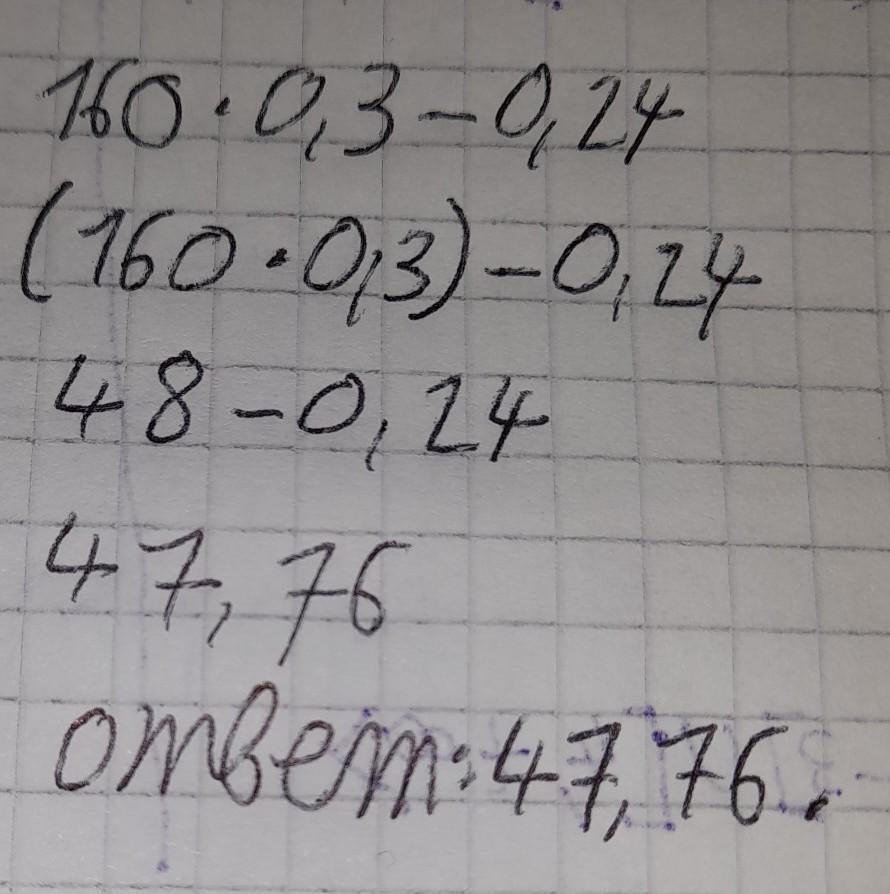 160·0,3-0,24
(160·0,3)-0,24
48-0,24
47,76
ответ:47,76.